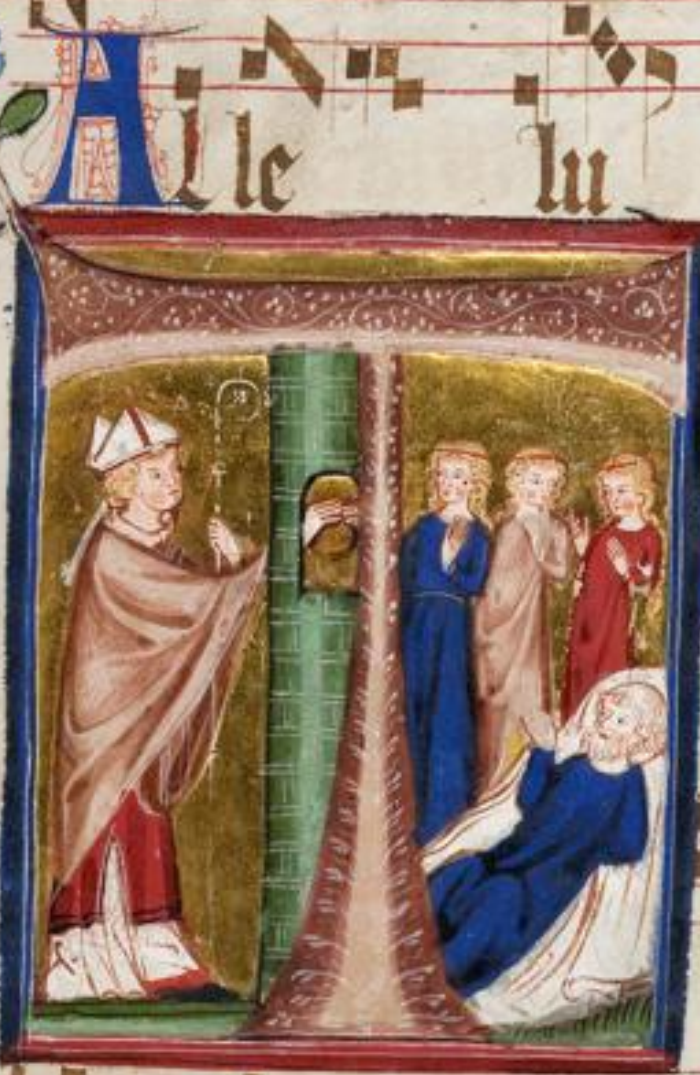 Alle lu